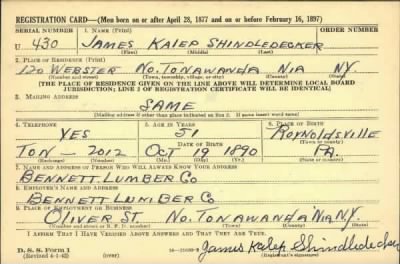 REGISTRATION CARD—(Men born on or after April 28, 1877 and on or before February 16, 1897)
SERIAL NUMBER 1. NAME (Print) ORDER NUMBER
U 430 JAMES KALEP SHINDLEDECKER
(First) (Middle) (Last)
2. PLACE OF RESIDENCE (Print)
120 WEBSTER NO. TONAWANDA NIA NY.
(Number and street) (Town, township, village, or city) (County) (State)
[THE PLACE OF RESIDENCE GIVEN ON THE LINE ABOVE WILL DETERMINE LOCAL BOARD
JURISDICTION; LINE 2 OF REGISTRATION CERTIFICATE WILL BE IDENTICAL]
3. MAILING ADDRESS
SAME
[Mailing address if other than place indicated on line 2. If same insert word same]
4. TELEPHONE 5. AGE IN YEARS 6. PLACE OF BIRTH
YES 51 REYNOLDSVILLE
DATE OF BIRTH (Town or county)
TON — 2012 OCT 19 1890 PA.
(Exchange) (Number) (Mo.) (Day) (Yr.) (State or country)
7. NAME AND ADDRESS OF PERSON WHO WILL ALWAYS KNOW YOUR ADDRESS
BENNETT LUMBER CO
8. EMPLOYER'S NAME AND ADDRESS
BENNETT LUMBER CO
9. PLACE OF EMPLOYMENT OR BUSINESS
OLIVER ST. NO. TONAWANDA NIA N.Y.
(Number and street or R. F. D. number) (Town) (County) (State)
I AFFIRM THAT I HAVE VERIFIED ABOVE ANSWERS AND THAT THEY ARE TRUE.
D. S. S. Form 1 James Kalep Shindledecker
(Revised 4-1-42) (over) (Registrant's signature)